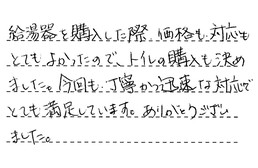 給湯器を購入した際、価格も対応も
とてもよかったので、トイレの購入も決め
ました。今回も、丁寧かつ迅速な対応で
とても満足しています。ありがとうござい
ました。